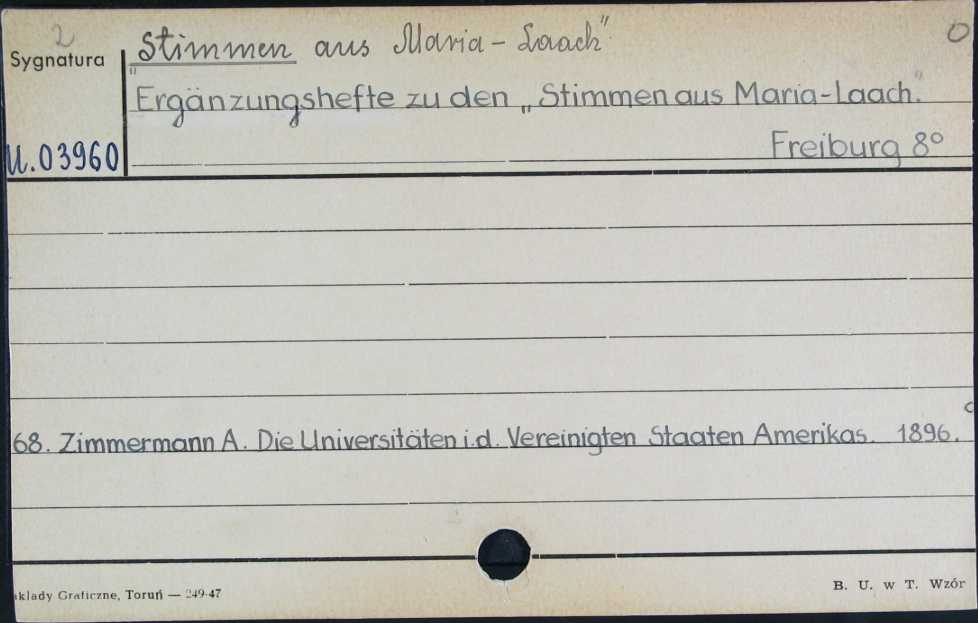 2
Sygnatura
„Stimmen aus Maria-Laach"
0
Ergänzungshefte zu den „Stimmen aus Maria-Laach."
Freiburg 8°
U.03960
68. Zimmermann A. Die Universitäten i.d. Vereinigten Staaten Amerikas. 1896.
kłady Graficzne, Toruń — 249-47
B. U. w T. Wzór